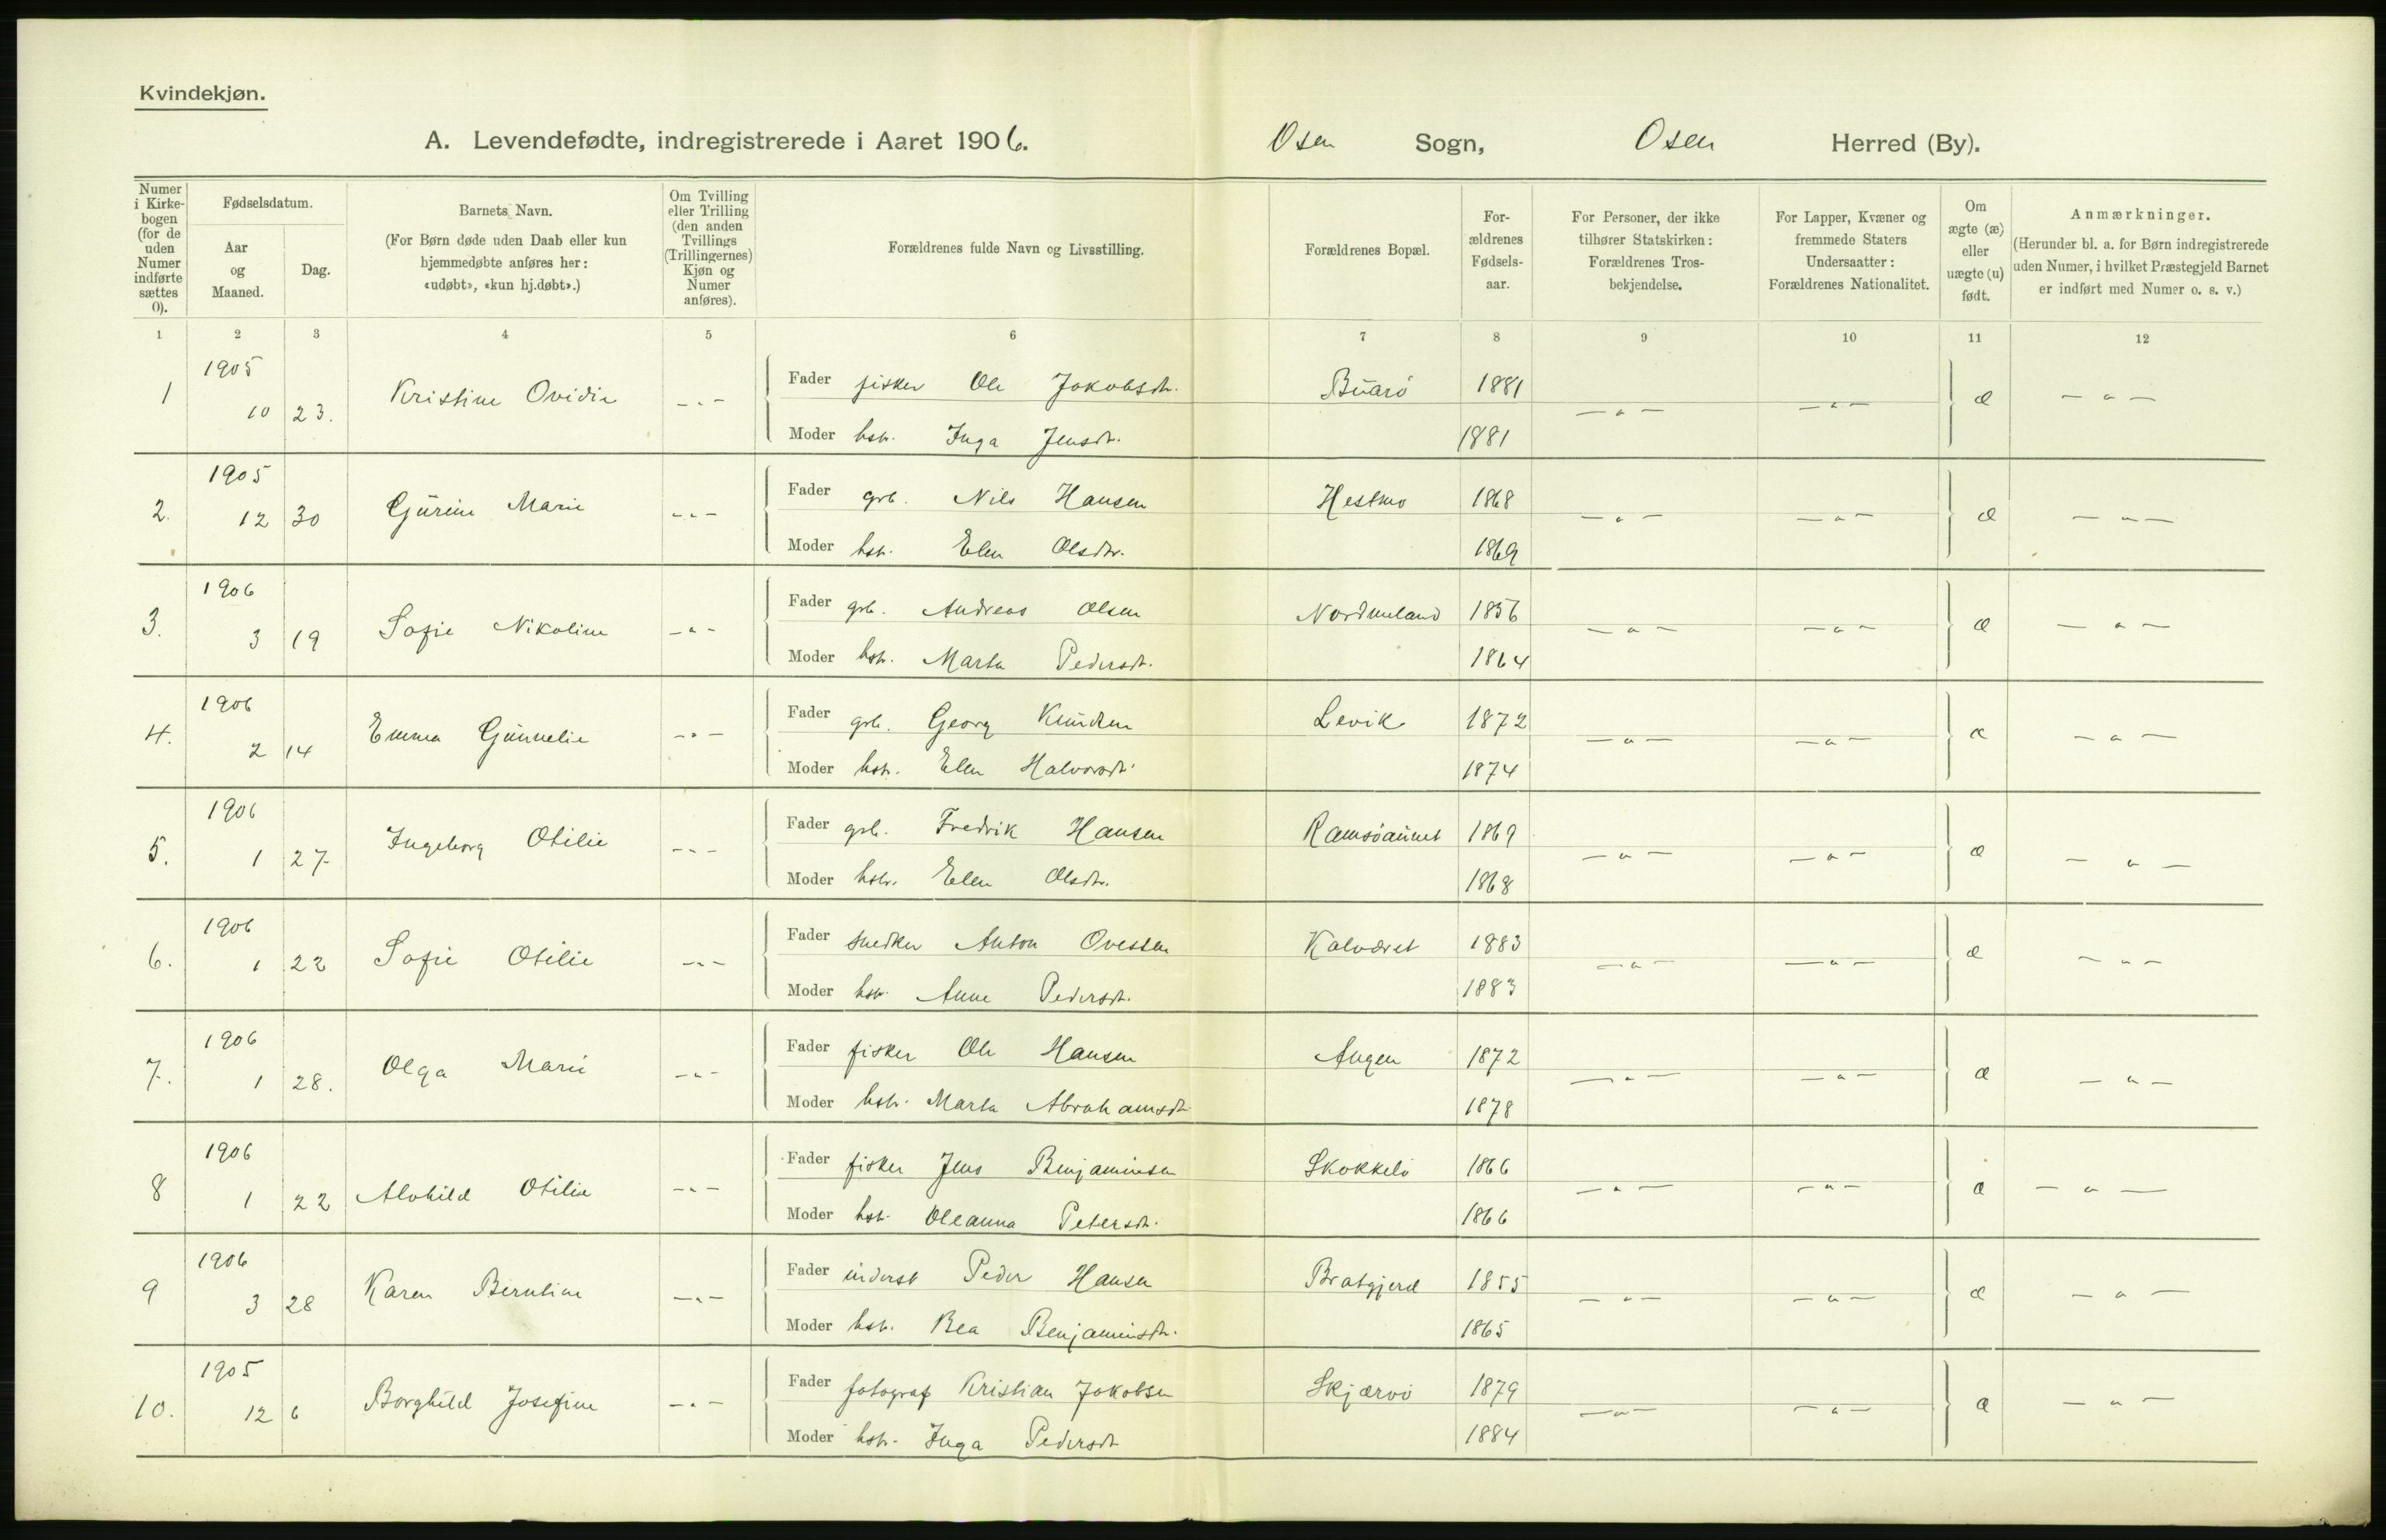 Kvindekjøn.
A. Levendefødte, indregistrerede i Aaret 1906. Osen Sogn, Osen Herred (By).
Numer i Kirke-bogen (for de uden Numer indførte sættes 0). | Fødselsdatum. Aar og Maaned. | Dag. | Barnets Navn. (For Børn døde uden Daab eller kun hjemmedøbte anføres her: «udøbt», «kun hj.døbt».) | Om Tvilling eller Trilling (den anden Tvillings (Trillingernes) Kjøn og Numer anføres). | Forældrenes fulde Navn og Livsstilling. | Forældrenes Bopæl. | For-ældrenes Fødsels-aar. | For Personer, der ikke tilhører Statskirken: Forældrenes Tros-bekjendelse. | For Lapper, Kvæner og fremmede Staters Undersaatter: Forældrenes Nationalitet. | Om ægte (æ) eller uægte (u) født. | Anmærkninger. (Herunder bl. a. for Børn indregistrerede uden Numer, i hvilket Præstegjeld Barnet er indført med Numer o. s. v.)
1 2 3 4 5 6 7 8 9 10 11 12
1 1905 10 23. Kristine Ovidie -"- Fader fisker Ole Jakobsdr. Buarö 1881 -"- -"- æ -"-
Moder hstr. Inga Jensdr. 1881
2. 1905 12 30 Gurine Marie -"- Fader grb. Nils Hansen Hestmo 1868 -"- -"- æ -"-
Moder hstr. Elen Olsdtr. 1869
3. 1906 3 19 Sofie Nikoline -"- Fader grb. Andreas Olsen Nordmeland 1856 -"- -"- æ -"-
Moder hstr. Marta Pedersdr. 1864
4. 1906 2 14 Emma Gunnelie -"- Fader grb. Georg Knudsen Levik 1872 -"- -"- æ -"-
Moder hstr. Elen Halvorsdr. 1874
5. 1906 1 27 Ingeborg Otilie -"- Fader grb. Fredrik Hansen Ramsöaunet 1869 -"- -"- æ -"-
Moder hstr. Elen Olsdtr. 1868
6. 1906 1 22 Sofie Otilie -"- Fader snedker Anton Ovesen Kalværet 1883 -"- -"- æ -"-
Moder hstr. Anne Pedersdr. 1883
7. 1906 1 28. Olga Marie -"- Fader fisker Ole Hansen Angen 1872 -"- -"- æ -"-
Moder hstr. Marta Abrahamsdr. 1878
8 1906 1 22 Alvhild Otilie -"- Fader fisker Jens Benjaminsen Skokkelö 1866 -"- -"- æ -"-
Moder hstr. Oleanna Petersdr. 1866
9 1906 3 28 Karen Berntine -"- Fader inderst Peder Hansen Bratgjerd 1855 -"- -"- æ -"-
Moder hstr. Bea Benjaminsdr. 1865
10. 1905 12 6 Borghild Josefine -"- Fader fotograf Kristian Jakobsen Skjærvö 1879 -"- -"- æ -"-
Moder hstr. Inga Pedersdr 1884